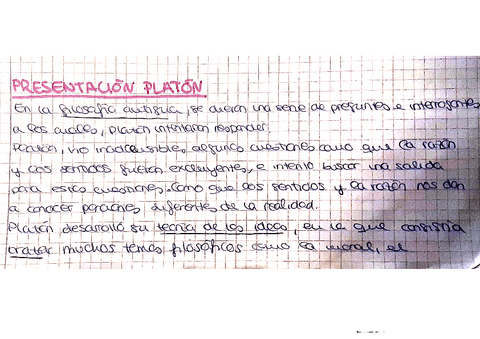 PRESENTACIÓN PLATÓN
En la filosofía antigua, se dieron una serie de preguntas e interrogantes
a los cuales, Platón intentaron responder.
Platón, vio inadmisible, algunas cuestiones como que la razón
y los sentidos fueran excluyentes, e intentó buscar una salida
para estas cuestiones. Como que los sentidos y la razón nos dan
a conocer porciones diferentes de la realidad.
Platón desarolló su teoría de las ideas, en la que consistía
tratar muchos temas filosóficos como la moral, el